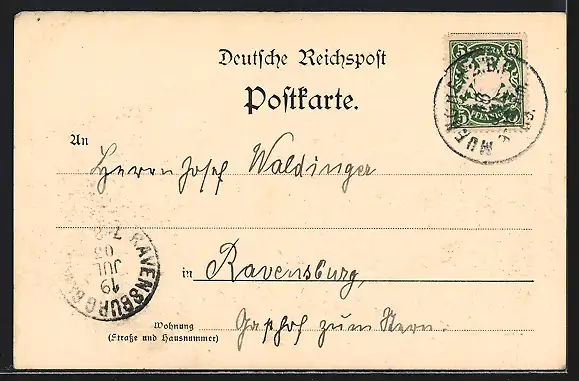 Deutsche Reichspost
Postkarte.
An
Herrn Josef Waldinger
in Ravensburg,
Wohnung
(Straße und Hausnummer)
Gasthof zum Stern.
5 5
5 PFENNIG 5
MUENCHEN 2.B.P.
RAVENSBURG
19
JUL
03